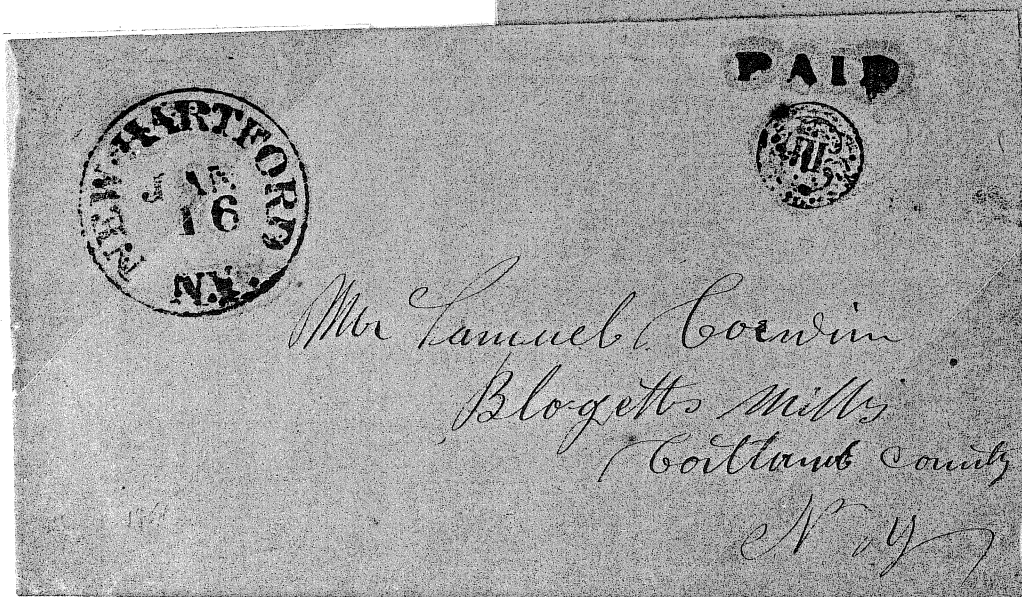 PAID
NEW-HARTFORD
JAN
16
N.Y.
III
Mr Samuel Corwin
Blogetts Mills
Cortland County
N Y